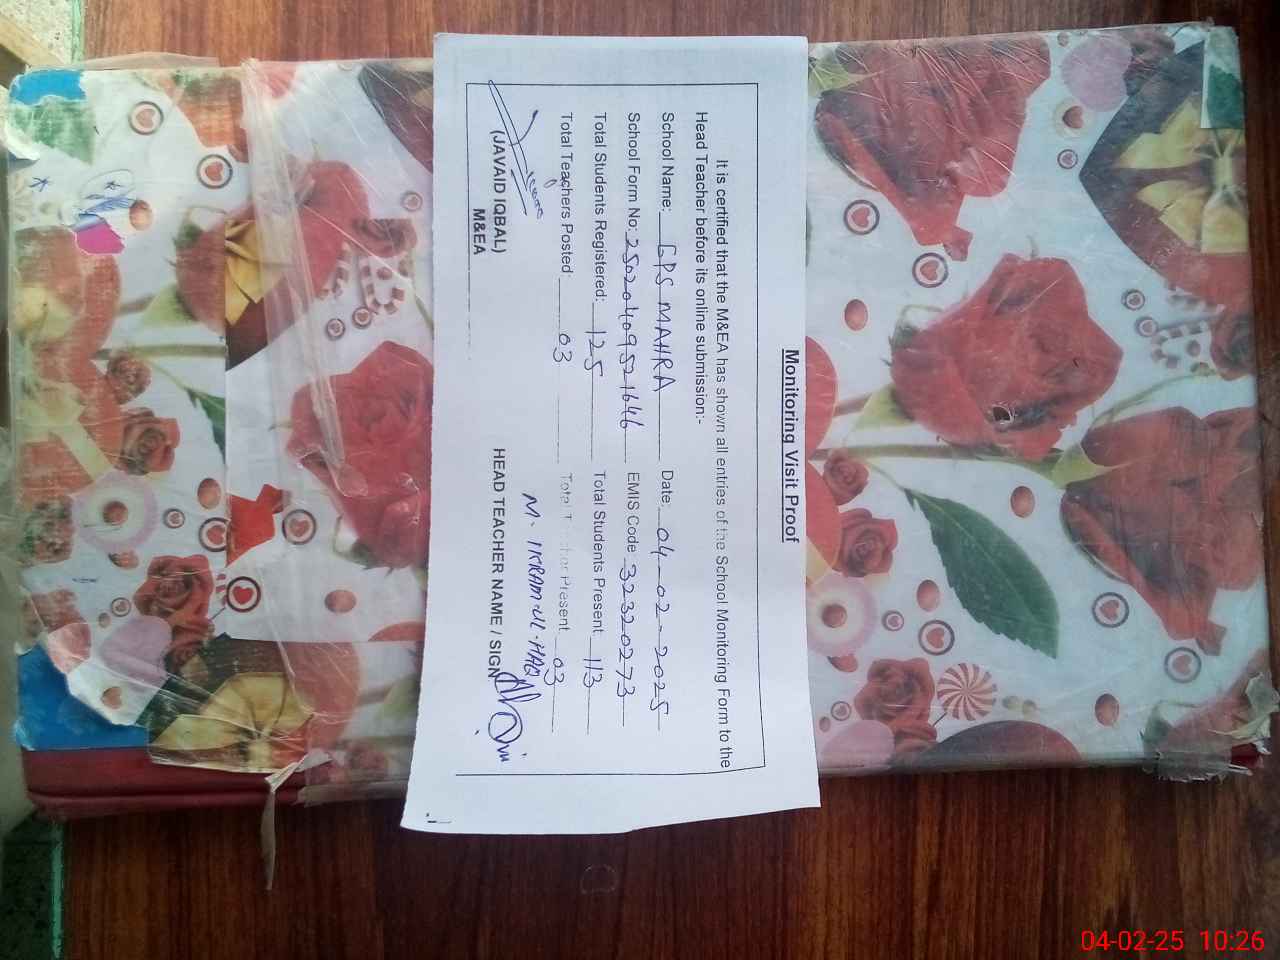 Monitoring Visit Proof
It is certified that the M&EA has shown all entries of the School Monitoring Form to the
Head Teacher before its online submission:-
School Name: GPS MAHRA Date: 04-02-2025
School Form No: 25020409521646 EMIS Code 32320273
Total Students Registered: 125 Total Students Present: 113
Total Teachers Posted: 03 Total Teacher Present 03
M. IKRAM-UL-HAQ
(JAVAID IQBAL) HEAD TEACHER NAME / SIGN
M&EA
04-02-25 10:26